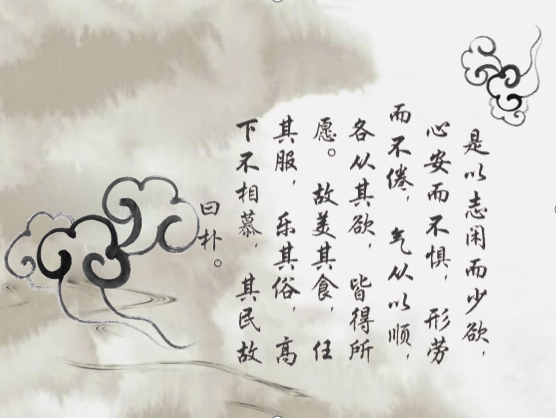 是以志闲而少欲，
心安而不惧，形劳
而不倦，气从以顺，
各从其欲，皆得所
愿。故美其食，任
其服，乐其俗，高
下不相慕，其民故
曰朴。